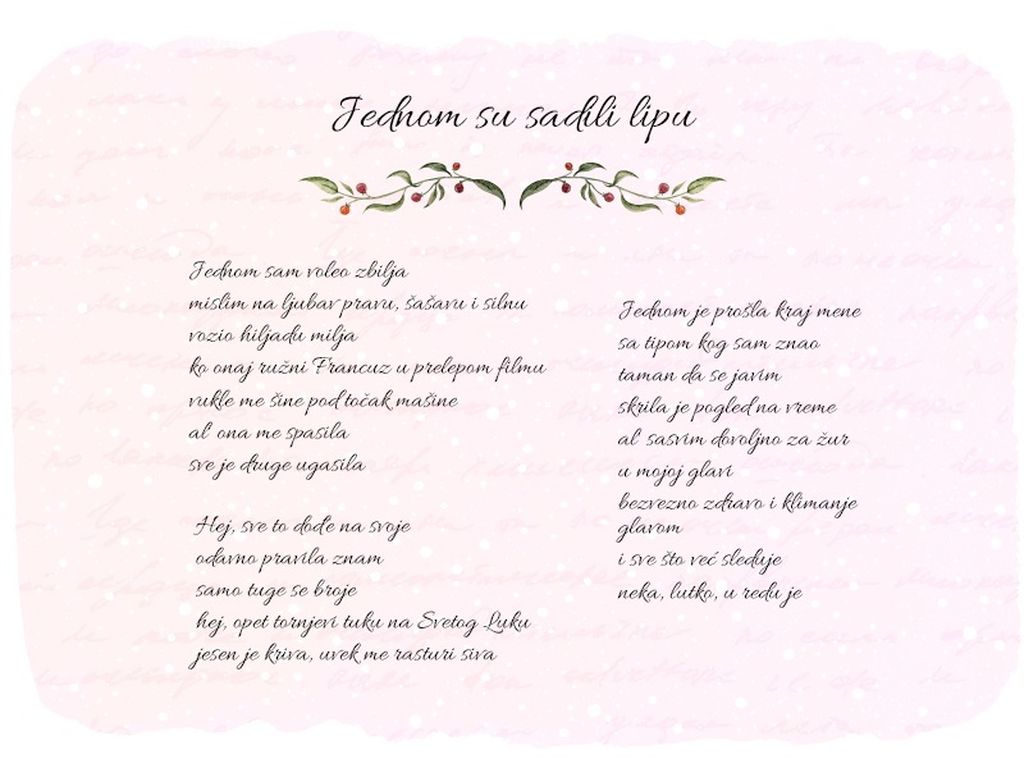 Jednom su sadili lipu
Jednom sam voleo zbilja
mislim na ljubav pravu, šašavu i silnu
vozio hiljadu milja
ko onaj ružni Francuz u prelepom filmu
vukle me šine pod točak mašine
al' ona me spasila
sve je druge ugasila
Hej, sve to dođe na svoje
odavno pravila znam
samo tuge se broje
hej, opet tornjevi tuku na Svetog Luku
jesen je kriva, uvek me rasturi siva
Jednom je prošla kraj mene
sa tipom kog sam znao
taman da se javim
skrila je pogled na vreme
al' sasvim dovoljno za žur
u mojoj glavi
bezvezno zdravo i klimanje
glavom
i sve što već sleduje
neka, lutko, u redu je